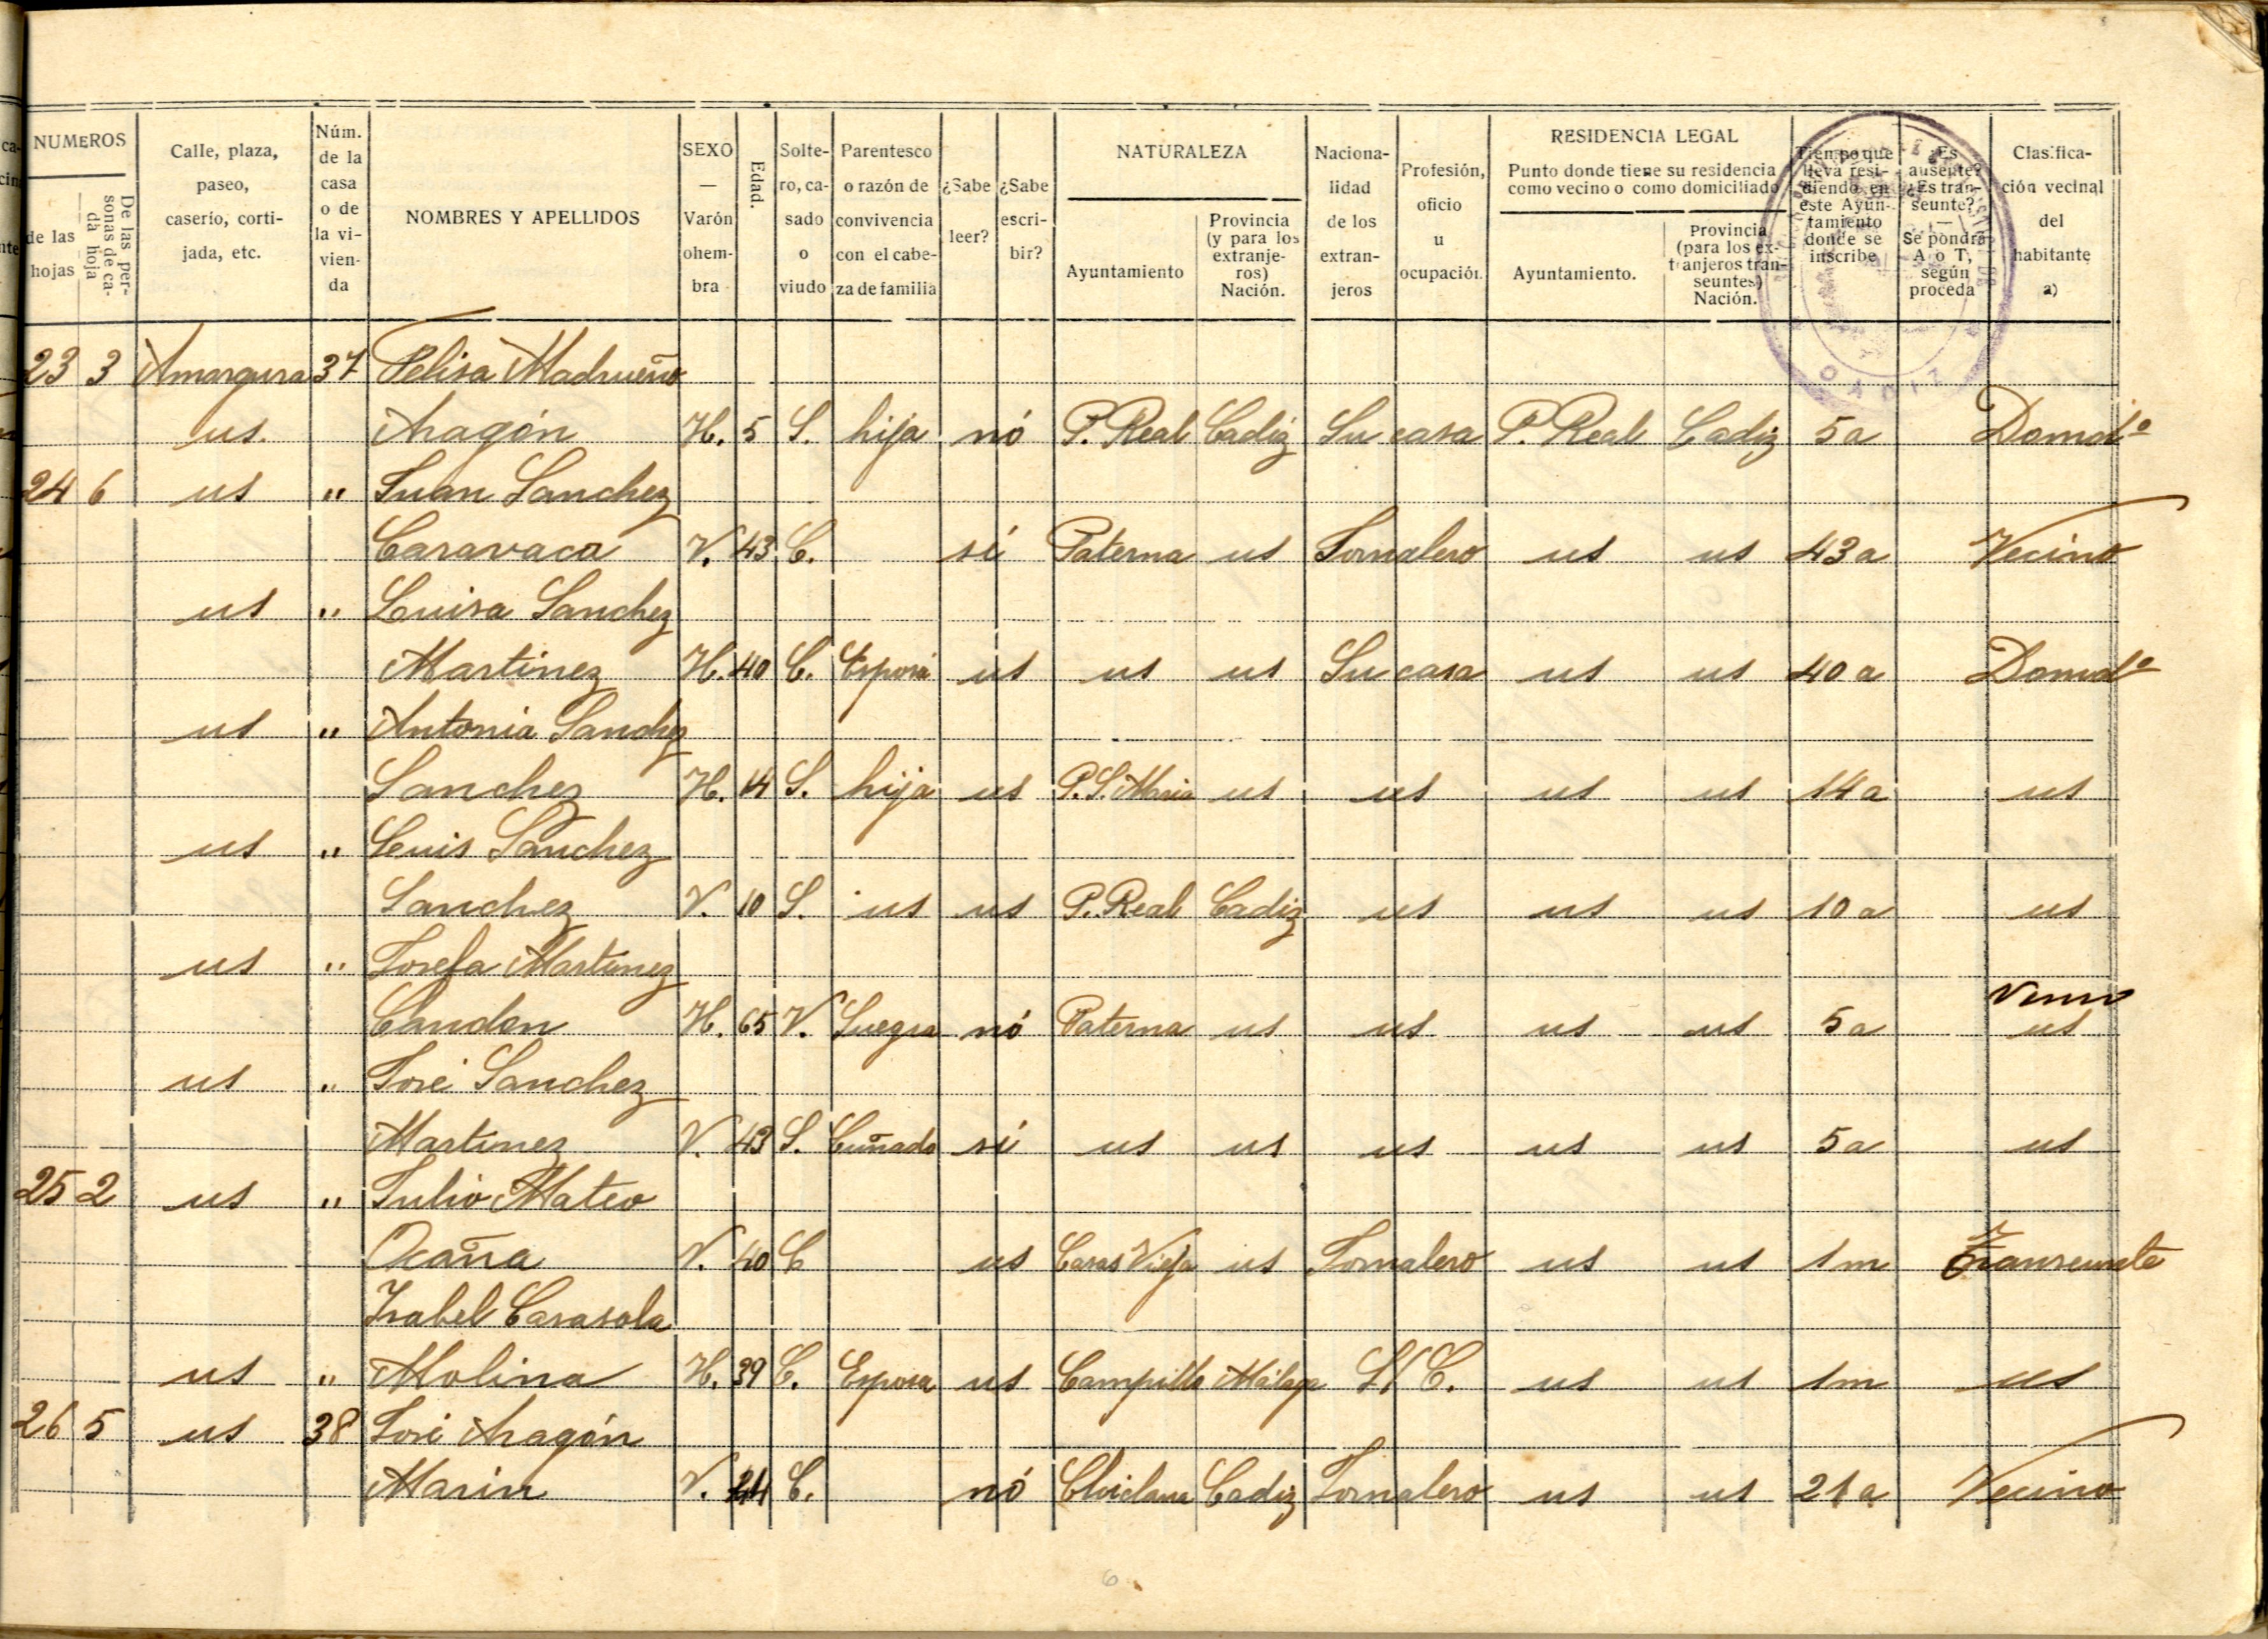 NUMEROS
de las hojas
De las personas de cada hoja
Calle, plaza, paseo, caserío, cortijada, etc.
Núm. de la casa o de la vivienda
NOMBRES Y APELLIDOS
SEXO — Varón ohembra
Edad.
Soltero, casado o viudo
Parentesco o razón de convivencia con el cabeza de familia
¿Sabe leer?
¿Sabe escribir?
NATURALEZA
Ayuntamiento
Provincia (y para los extranjeros) Nación.
Nacionalidad de los extranjeros
Profesión, oficio u ocupación.
RESIDENCIA LEGAL
Punto donde tiene su residencia como vecino o como domiciliado
Ayuntamiento.
Provincia (para los extranjeros transeuntes) Nación.
Tiempo que lleva residiendo en este Ayuntamiento donde se inscribe
¿Es ausente? ¿Es transeunte? — Se pondrá A o T, según proceda
Clasificación vecinal del habitante a)
CADIZ
23 3 Amargura 37 Felisa Madrueño
us. Aragón H. 5 S. hija nó P. Real Cadiz Su casa P. Real Cadiz 5a Domdº
24 6 us " Juan Sanchez
Caravaca V. 43 C. sí Paterna us Jornalero us us 43a Vecino
us " Luisa Sanchez
Martinez H. 40 C. Esposa us us us Su casa us us 40a Domdº
us " Antonia Sanchez
Sanchez H. 14 S. hija us P. S. Maria us us us us 14a us
us " Luis Sanchez
Sanchez V. 10 S. us us P. Real Cadiz us us us 10a us
us " Josefa Martinez
Candon H. 65 V. Suegra nó Paterna us us us us 5a us
us " José Sanchez
Martinez V. 43 S. Cuñado sí us us us us us 5a us
25 2 us " Julio Mateo
Ocaña V. 40 C us Casas Vieja us Jornalero us us 1m Transeunte
Isabel Carasola
us " Molina H. 39 C. Esposa us Campillo Málaga S/C. us us 1m us
26 5 us 38 José Aragón
Marin V. C. nó Chiclana Cadiz Jornalero us us 21a Vecino
6